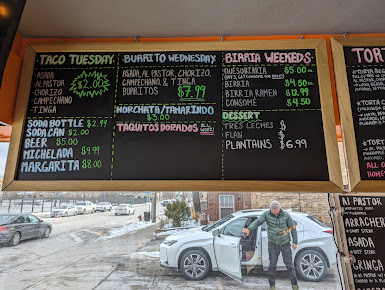 TACO TUESDAY:
ASADA
AL PASTOR
CHORIZO
CAMPECHANO
TINGA
$2.00
SODA BOTTLE $2.99
SODA CAN $2.00
BEER $5.00
MICHELADA $9.99
MARGARITA $8.00
BURRITO WEDNESDAY:
ASADA, AL PASTOR, CHORIZO,
CAMPECHANO & TINGA
BURRITOS $7.99
HORCHATA/TAMARINDO
$5.00
TAQUITOS DORADOS ALL WEEK!
BIRRIA WEEKENDS:
QUESOBIRIA $5.00
BIRRIA $4.50
BIRRIA RAMEN $12.99
CONSOME $4.50
DESSERT
TRES LECHES $
FLAN $
PLANTAINS $6.99
TORT
ARRACHER
GRINGA